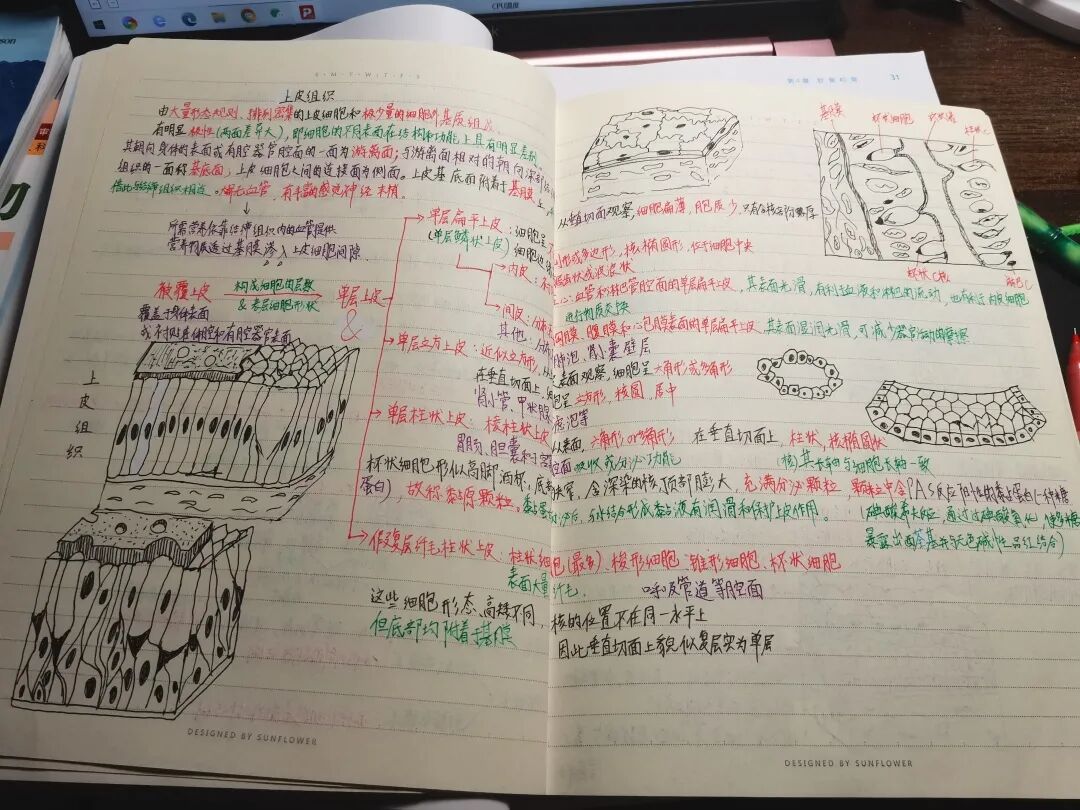 CPU温度
son
R·M·F·W·T·F·S
第4章
31
上皮组织
由大量形态规则、排列密集的上皮细胞和极少量的细胞外基质组成
有明显极性(两面差异大),即细胞的不同表面在结构和功能上具有明显差别
其朝向身体的表面或有腔器官腔面的一面为游离面;与游离面相对的朝向深部
组织的一面称基底面,上皮细胞之间的连接面为侧面。上皮基底面附着于基膜上,
借此与结缔组织相连。无血管,有丰富的感觉神经末梢。
所需营养依靠结缔组织内的血管提供
营养物质透过基膜渗入上皮细胞间隙.
被覆上皮
构成细胞的层数
&表层细胞形状
覆盖于身体表面
或衬贴体腔和有腔器官表面
单层上皮
&
上皮组织
单层扁平上皮:细胞呈
(单层鳞状上皮)细胞边缘
内皮:
间皮:
其他:
单层立方上皮:近似立方形,
在垂直切面上,
肾小管、甲状腺
单层柱状上皮:
胃肠、胆囊和
杯状细胞形似高脚酒杯,
蛋白),故称黏原颗粒。
假复层纤毛柱状上皮:柱状细胞(最多)、梭形细胞、锥形细胞、杯状细胞
表面大量纤毛,
呼吸管道等腔面
这些细胞形态、高矮不同,
但底部均附着于基膜
核的位置不在同一水平上
因此垂直切面上貌似复层实为单层
基膜
杯状细胞
从垂直切面观察,细胞扁薄,胞质少,只有含核部分略厚
则形或多边形,核椭圆形,位于细胞中央
锯齿状或波浪状
心、血管和淋巴管腔面的单层扁平上皮,其表面光滑,有利于血液和淋巴的流动,也有利于内皮细胞
进行物质交换
胸膜、腹膜和心包膜表面的单层扁平上皮,其表面湿润光滑,可减少器官活动的摩擦
肺泡、肾小囊壁层
表面观察,细胞呈六角形或多角形
包呈立方形,核圆,居中
滤泡等
从表面,六角形or多角形
在垂直切面上,柱状,核椭圆状
(核)其长轴与细胞长轴一致
腔面吸收或分泌功能
含深染的核,顶部膨大,充满分泌颗粒,颗粒中含PAS反应阳性的黏蛋白(一种糖
分泌后,与水结合形成黏液有润滑和保护上皮作用。
DESIGNED BY SUNFLOWER
DESIGNED BY SUNFLOWER